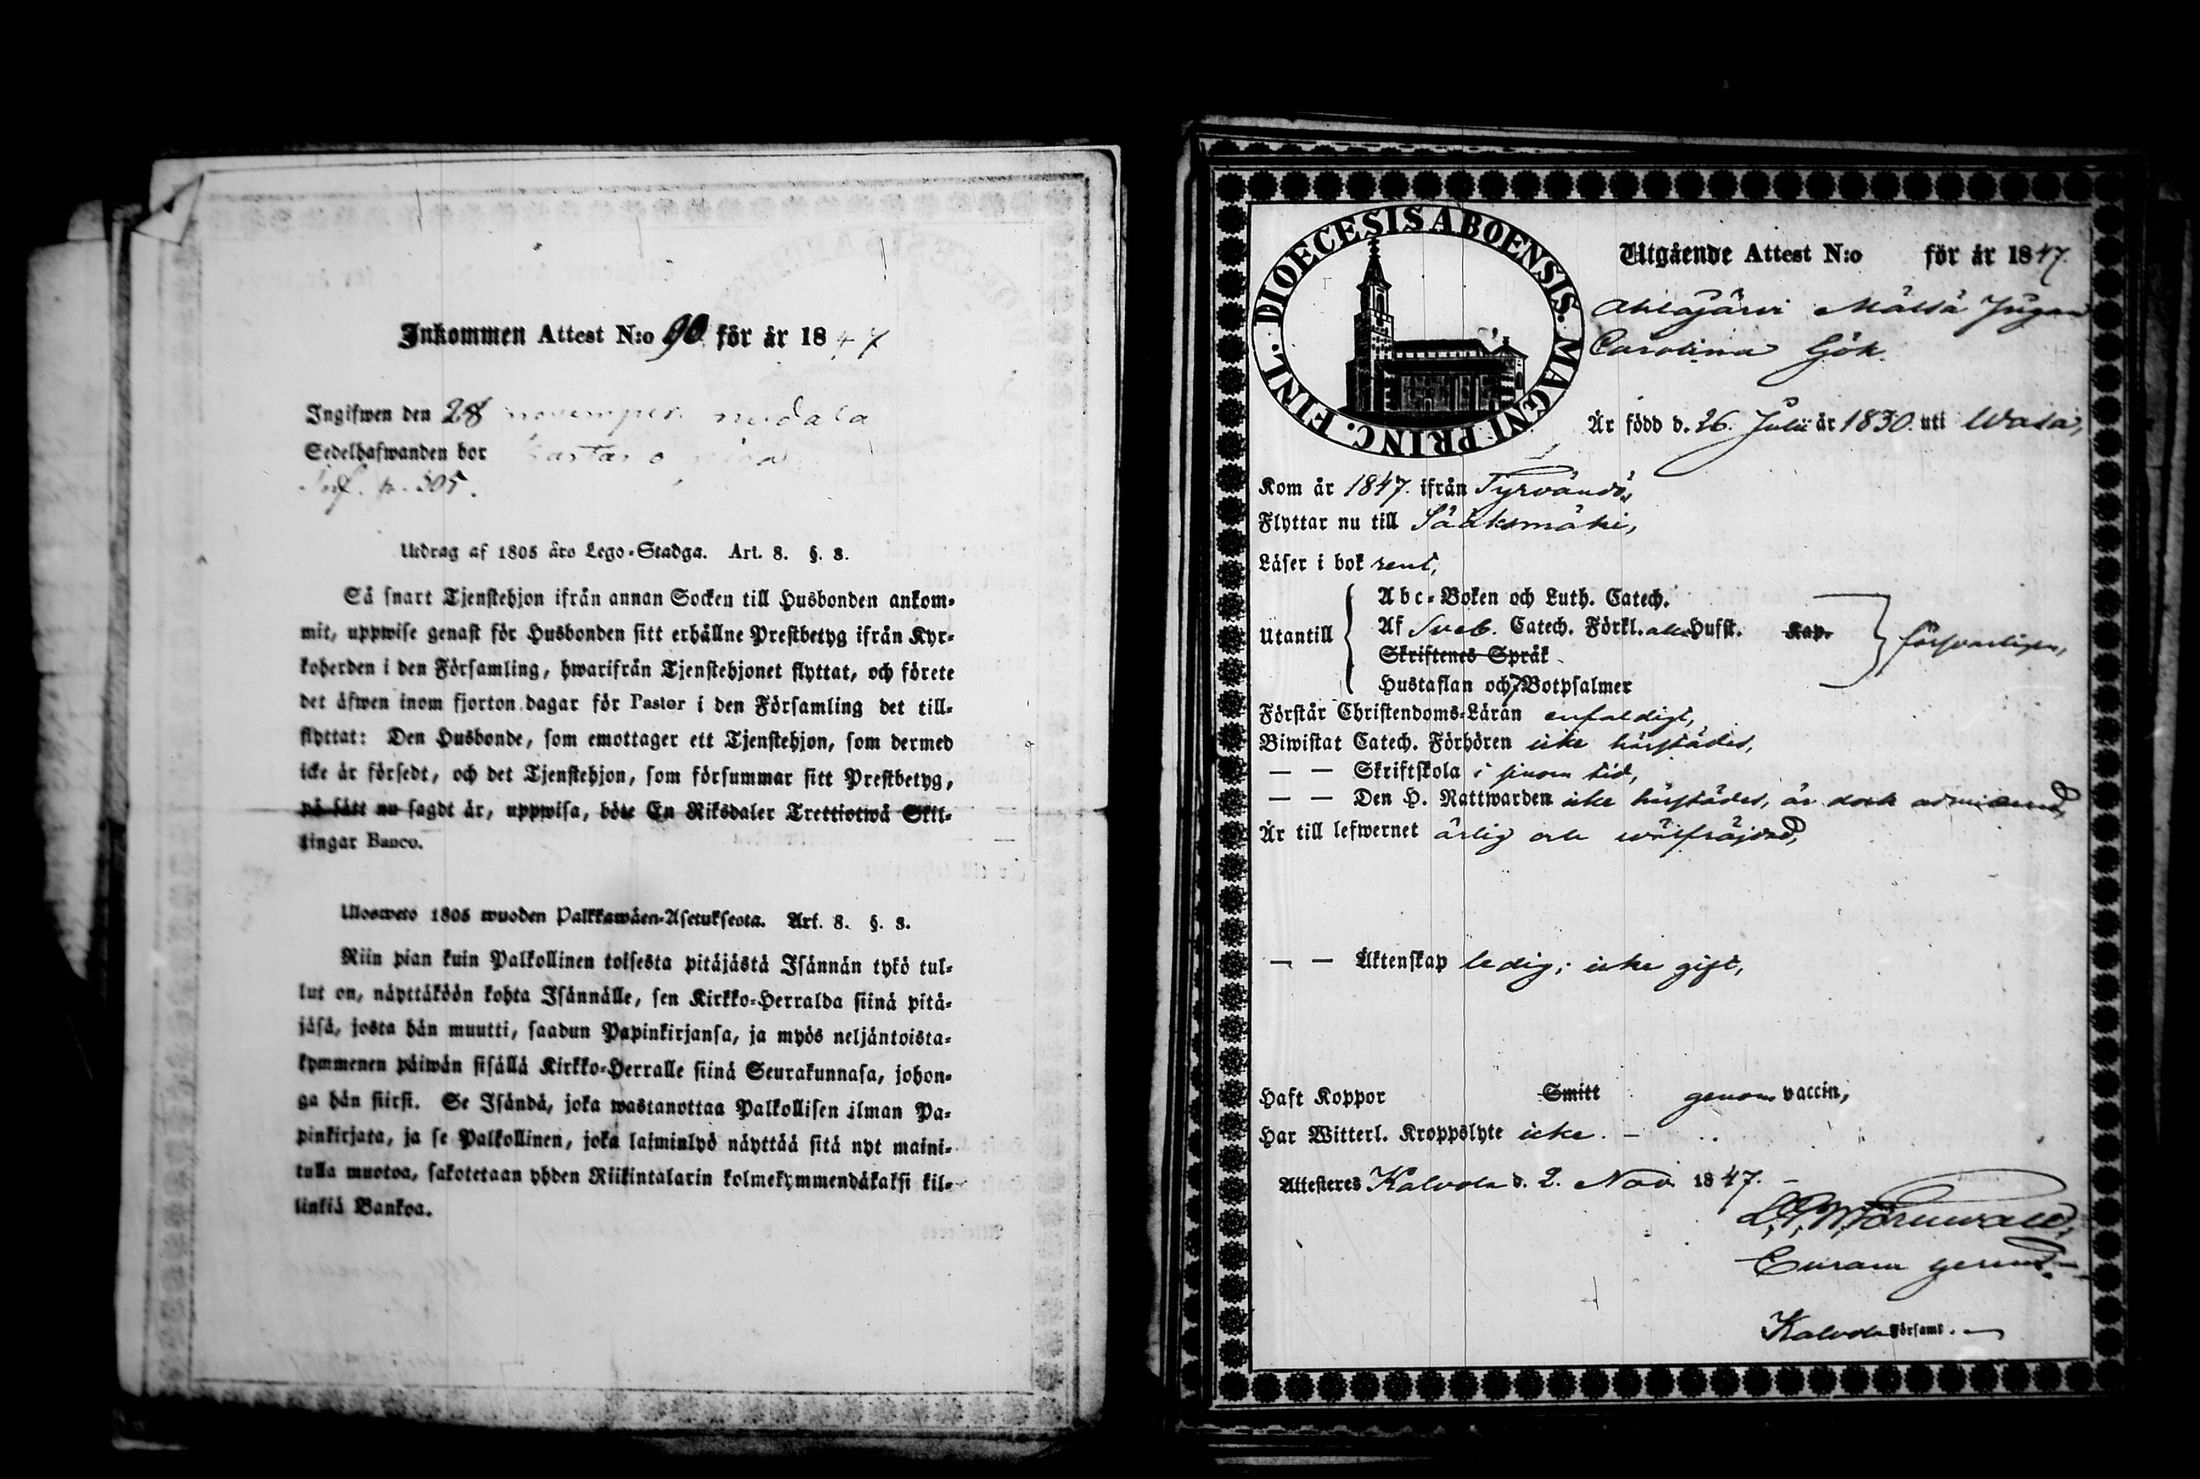 Inkommen Attest N:o 90 för år 1847
Ingifwen den 28 november
Sedelhafwanden bor
Inf. p. 305.
Utdrag af 1805 års Lego-Stadga. Art. 8. §. 3.
Så snart Tjenstehjon ifrån annan Socken till Husbonden ankom-
mit, uppwise genast för Husbonden sitt erhållne Prestbetyg ifrån Kyr-
koherden i den Församling, hwarifrån Tjenstehjonet flyttat, och förete
det äfwen inom fjorton dagar för Pastor i den Församling det till-
flyttat: Den Husbonde, som emottager ett Tjenstehjon, som dermed
icke är försedt, och det Tjenstehjon, som försummar sitt Prestbetyg,
på sätt nu sagdt är, uppwisa, böte En Riksdaler Trettiotwå Skil-
lingar Banco.
Ulosweto 1805 wuoden Palkkawäen-Asetuksesta. Art. 8. §. 3.
Niin pian kuin Palkollinen toisesta pitäjästä Isännän tykö tul-
lut on, näyttäköön kohta Isännälle, sen Kirkko-Herralda siinä pitä-
jäsä, josta hän muutti, saadun Papinkirjansa, ja myös neljäntoista-
kymmenen päiwän sisällä Kirkko-Herralle siinä Seurakunnasa, johon-
ga hän siirsi. Se Isändä, joka wastanottaa Palkollisen ilman Pa-
pinkirjata, ja se Palkollinen, joka laiminlyö näyttää sitä nyt maini-
tulla muotoa, sakotetaan yhden Riikintalarin kolmekymmendäkaksi kil-
linkiä Bankoa.
DIOECESIS ABOENSIS. MAGNI PRINC. FINL.
Utgående Attest N:o för år 1847.
Ahlajärvi Mälsä Jugan
Carolina Gök
Är född d. 26. Julii år 1830. uti Wasa,
Kom år 1847. ifrån Tyrvändö,
Flyttar nu till Sääksmäki,
Läser i bok rent,
Utantill
Abc-Boken och Luth. Catech.
Af Sveb. Catech. Förkl. alla Hufst. Kap.
Skriftenes Språk
Hustaflan och 7 Botpsalmer
försvarligen,
Förstår Christendoms-Läran enfaldigt,
Biwistat Catech. Förhören icke härstädes,
— — Skriftskola i sinom tid,
— — Den H. Nattwarden icke härstädes, är dock admitterad,
Är till lefwernet ärlig och wälfräjdad,
— — Äktenskap ledig; icke gift,
Haft Koppor Smitt genom vaccin,
Har Witterl. Kroppslyte icke. —
Attesteres Kalvola d. 2. Nov. 1847. —
Curam gerens.
Kalvola Församl. —